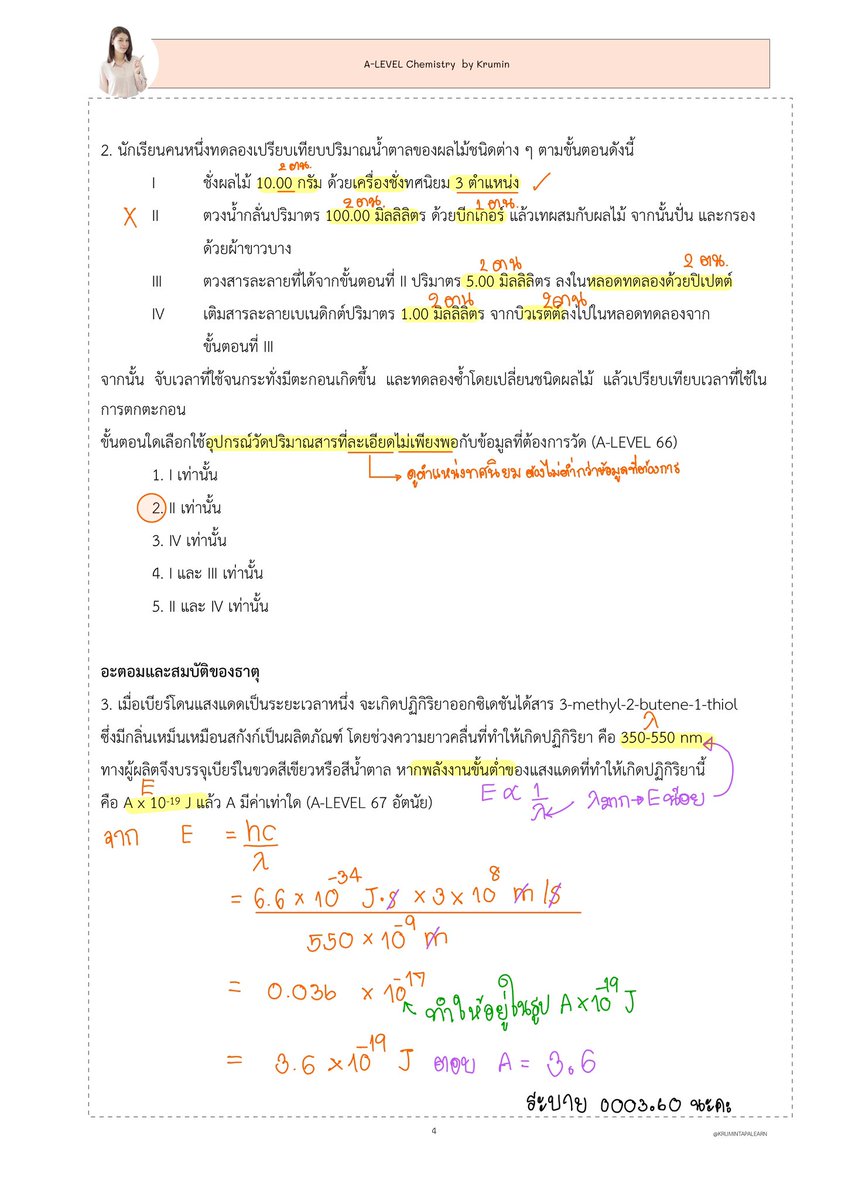 A-LEVEL Chemistry by Krumin
2. นักเรียนคนหนึ่งทดลองเปรียบเทียบปริมาณน้ำตาลของผลไม้ชนิดต่าง ๆ ตามขั้นตอนดังนี้
2 ตน.
I ชั่งผลไม้ 10.00 กรัม ด้วยเครื่องชั่งทศนิยม 3 ตำแหน่ง ✓
2 ตน. 1 ตน.
X II ตวงน้ำกลั่นปริมาตร 100.00 มิลลิลิตร ด้วยบีกเกอร์ แล้วเทผสมกับผลไม้ จากนั้นปั่น และกรอง
ด้วยผ้าขาวบาง
2 ตน 2 ตน.
III ตวงสารละลายที่ได้จากขั้นตอนที่ II ปริมาตร 5.00 มิลลิลิตร ลงในหลอดทดลองด้วยปิเปตต์
2 ตน 2 ตน
IV เติมสารละลายเบเนดิกต์ปริมาตร 1.00 มิลลิลิตร จากบิวเรตต์ลงไปในหลอดทดลองจาก
ขั้นตอนที่ III
จากนั้น จับเวลาที่ใช้จนกระทั่งมีตะกอนเกิดขึ้น และทดลองซ้ำโดยเปลี่ยนชนิดผลไม้ แล้วเปรียบเทียบเวลาที่ใช้ใน
การตกตะกอน
ขั้นตอนใดเลือกใช้อุปกรณ์วัดปริมาณสารที่ละเอียดไม่เพียงพอกับข้อมูลที่ต้องการวัด (A-LEVEL 66)
1. I เท่านั้น
ดูตำแหน่งทศนิยม ต้องไม่ต่ำกว่าข้อมูลที่ต้องการ
2. II เท่านั้น
3. IV เท่านั้น
4. I และ III เท่านั้น
5. II และ IV เท่านั้น
อะตอมและสมบัติของธาตุ
3. เมื่อเบียร์โดนแสงแดดเป็นระยะเวลาหนึ่ง จะเกิดปฏิกิริยาออกซิเดชันได้สาร 3-methyl-2-butene-1-thiol
λ
ซึ่งมีกลิ่นเหม็นเหมือนสกังก์เป็นผลิตภัณฑ์ โดยช่วงความยาวคลื่นที่ทำให้เกิดปฏิกิริยา คือ 350-550 nm
ทางผู้ผลิตจึงบรรจุเบียร์ในขวดสีเขียวหรือสีน้ำตาล หากพลังงานขั้นต่ำของแสงแดดที่ทำให้เกิดปฏิกิริยานี้
E
คือ A x 10⁻¹⁹ J แล้ว A มีค่าเท่าใด (A-LEVEL 67 อัตนัย)
E ∝ 1/λ λมาก → E น้อย
จาก E = hc/λ
= 6.6 × 10⁻³⁴ J·s × 3 × 10⁸ m/s
550 × 10⁻⁹ m
= 0.036 × 10⁻¹⁷
ทำให้อยู่ในรูป A × 10⁻¹⁹ J
= 3.6 × 10⁻¹⁹ J ตอบ A = 3.6
ระบาย 0003.60 นะคะ
4
@KRUMINTAPALEARN